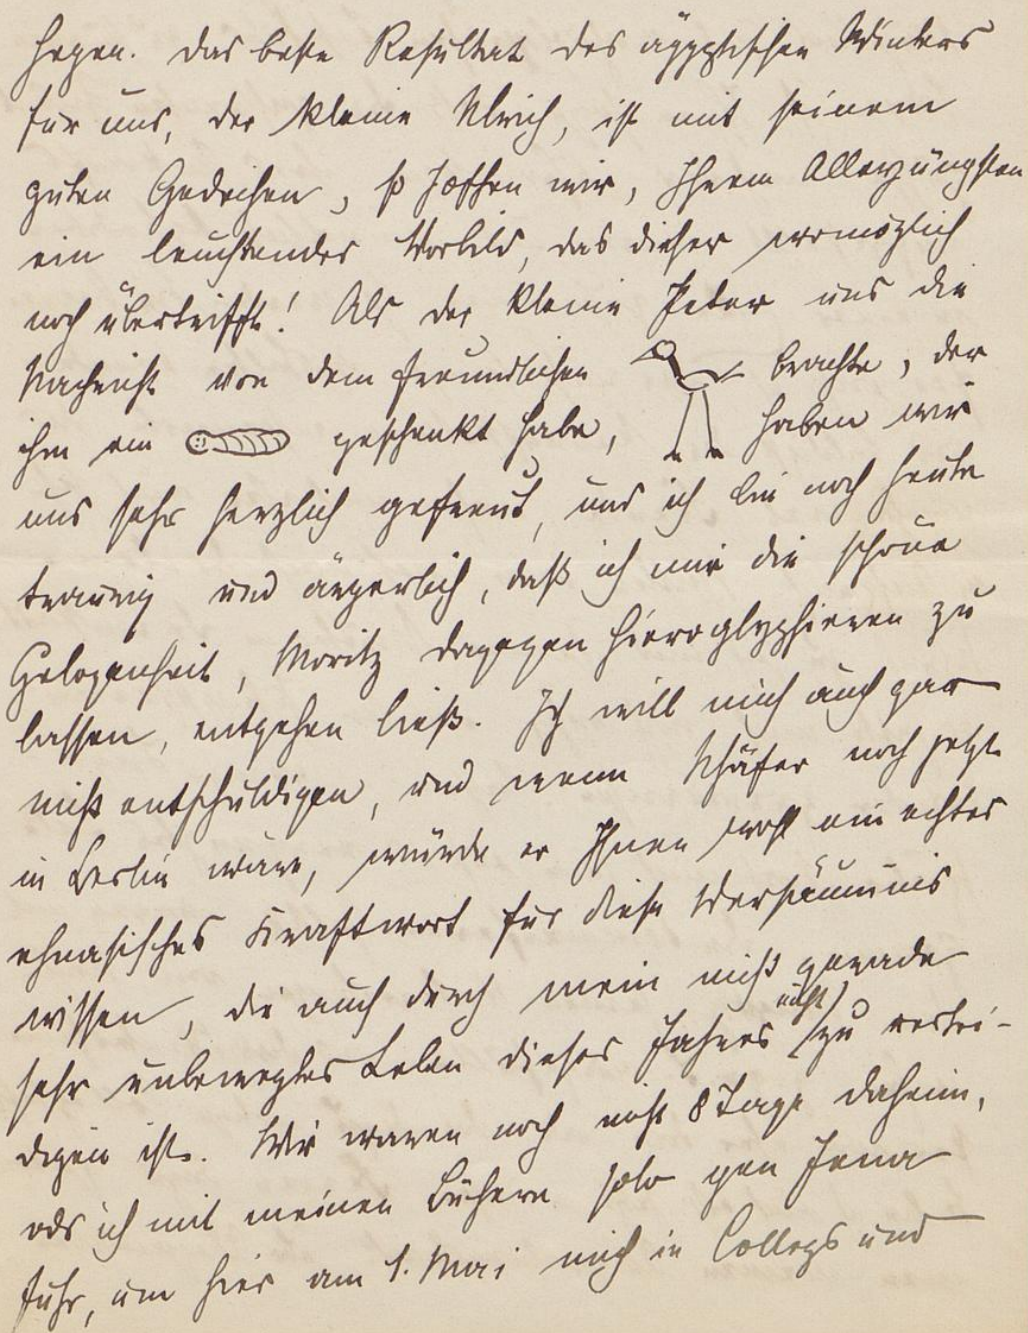 hegen. Das beste Resultat des ägyptischen Winters
für uns, der kleine Ulrich, ist mit seinem
guten Gedeihen, so hoffen wir, Ihrem Allerjüngsten
ein leuchtendes Vorbild, das dieser womöglich
noch übertrifft! Als der kleine Peter uns die
Nachricht von dem freundlichen brachte, der
ihm ein geschenkt habe, haben wir
uns sehr herzlich gefreut, und ich bin noch heute
traurig und ärgerlich, daß ich mir die schöne
Gelegenheit, Moritz dagegen hieroglyphieren zu
lassen, entgehen ließ. Ich will mich auch gar
nicht entschuldigen, und wenn Schäfer noch jetzt
in Berlin wäre, würde er Ihnen wohl ein echtes
ehnasisches Kraftwort für diese Versäumnis
wissen, die auch durch mein nicht gerade
sehr unbewegtes Leben dieses Jahres nicht zu vertei-
digen ist. Wir waren noch nicht 8 Tage daheim,
als ich mit meinen Büchern solo gen Jena
fuhr, um hier am 1. Mai mich in Collegs und